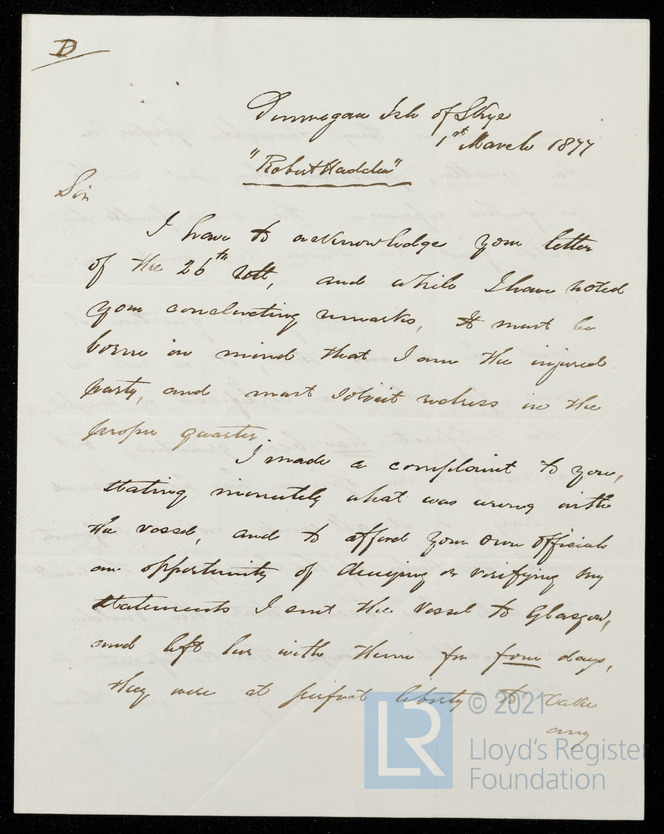 D
Dunvegan Isle of Skye
1st March 1877
"Robert Hadden"
Sir
I have to acknowledge your letter
of the 26th Ult, and while I have noted
your concluding remarks, It must be
borne in mind that I am the injured
party, and must solicit redress in the
proper quarter.
I made a complaint to you,
stating minutely what was wrong with
the vessel, and to afford your own officials
an opportunity of denying or verifying my
statements I sent the vessel to Glasgow,
and left her with them for four days,
they were at perfect liberty to take
any
© 2021
LR
Lloyd's Register
Foundation